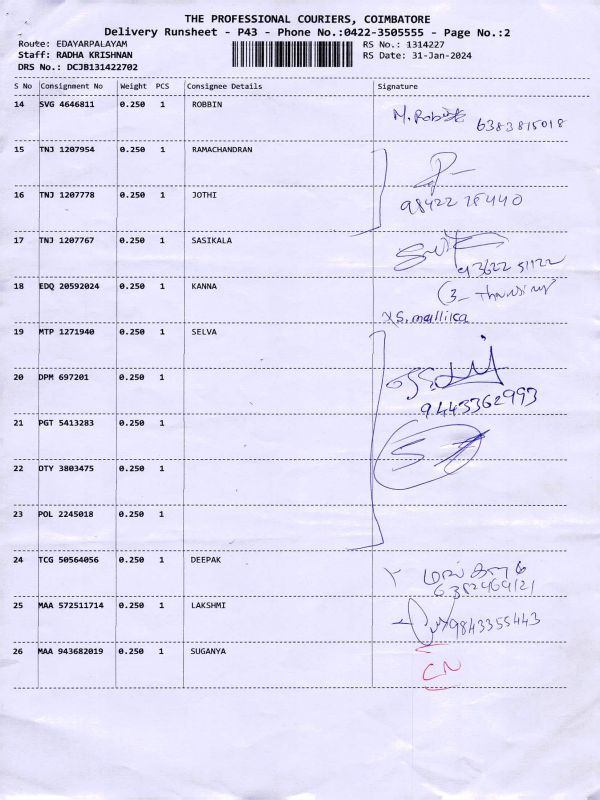 THE PROFESSIONAL COURIERS, COIMBATORE
Delivery Runsheet - P43 - Phone No.:0422-3505555 - Page No.:2
Route: EDAYARPALAYAM RS No.: 1314227
Staff: RADHA KRISHNAN RS Date: 31-Jan-2024
DRS No.: DCJB131422702
S No Consignment No Weight PCS Consignee Details Signature
14 SVG 4646811 0.250 1 ROBBIN M. Robi 6383815018
15 TNJ 1207954 0.250 1 RAMACHANDRAN
16 TNJ 1207778 0.250 1 JOTHI
17 TNJ 1207767 0.250 1 SASIKALA
18 EDQ 20592024 0.250 1 KANNA
X S. mallika
19 MTP 1271940 0.250 1 SELVA
20 DPM 697201 0.250 1
9443362993
21 PGT 5413283 0.250 1
22 DTY 3803475 0.250 1
23 POL 2245018 0.250 1
24 TCG 50564056 0.250 1 DEEPAK
6382464121
25 MAA 572511714 0.250 1 LAKSHMI 9843355443
26 MAA 943682019 0.250 1 SUGANYA CN